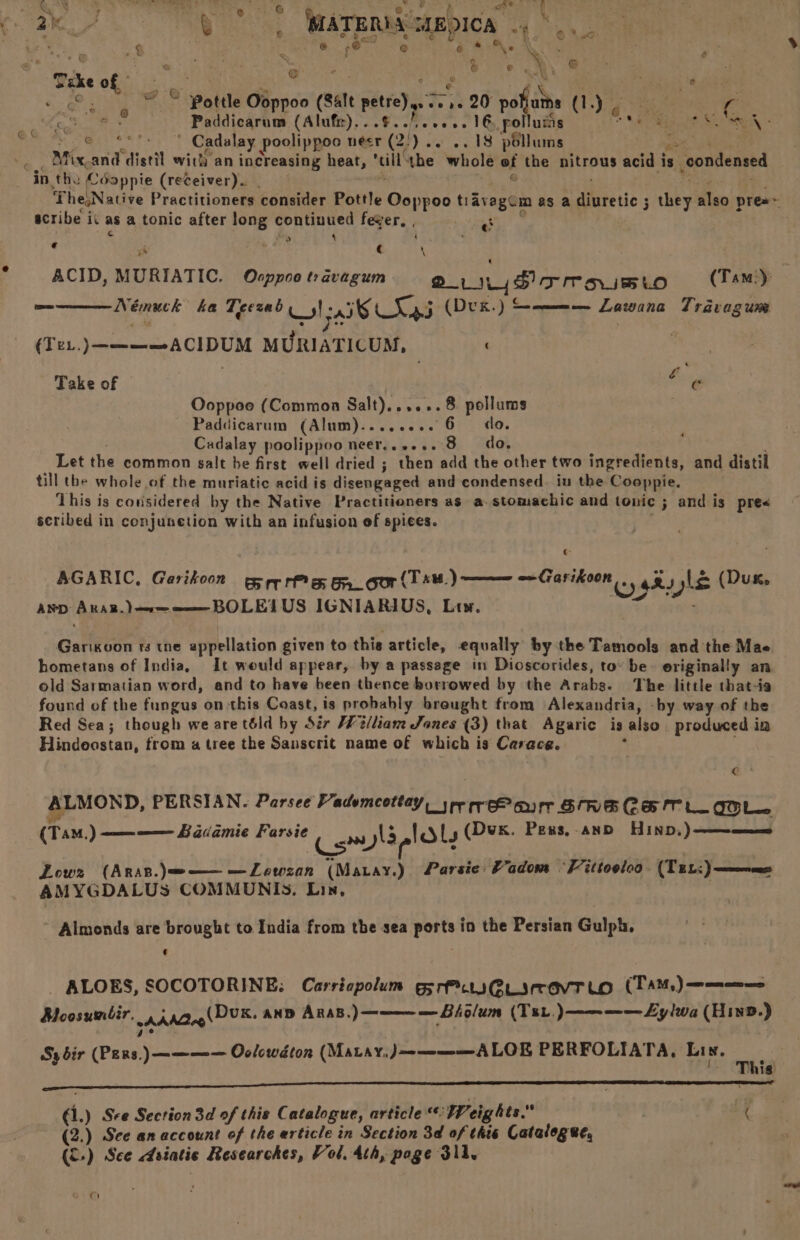 2 MATERIA MEDICA
Take of
Pottle Ooppoo (Salt petre)...... 20 pollums (1.)
Paddicarum (Alum)............ 16 pollums
Cadalay poolippoo neer (2.).. .. 18 pollums
Mix and distil with an increasing heat, 'till the whole of the nitrous acid is condensed
in the Cooppie (receiver).
The Native Practitioners consider Pottle Ooppoo travagum as a diuretic ; they also pres-
scribe it as a tonic after long continued fever.
ACID, MURIATIC. Ooppoo travagum உப்புத்திராவகம் (Tam.)
———Némuck ka Teezab نمک کا تیزاب (Duk.) ——— Lawana Trávagum
(Tel.)————ACIDUM MURIATICUM,
Take of
Ooppoo (Common Salt)...... 8 pollums
Paddicarum (Alum)........ 6 do.
Cadalay poolippoo neer...... 8 do.
Let the common salt be first well dried ; then add the other two ingredients, and distil
till the whole of the muriatic acid is disengaged and condensed in the Cooppie.
This is considered by the Native Practitioners as a stomachic and tonic ; and is pres
scribed in conjunction with an infusion of spices.
AGARIC, Garikoon (Tam.) ——— Garikoon غاریقون (Duk.
AND Arab.)———BOLETUS IGNIARIUS, Lin.
Garikoon is the appellation given to this article, equally by the Tamools and the Mae
hometans of India, It would appear, by a passage in Dioscorides, to be originally an
old Sarmatian word, and to have been thence borrowed by the Arabs. The little that is
found of the fungus on this Coast, is probably brought from Alexandria, by way of the
Red Sea; though we are told by Sir William Jones (3) that Agaric is also produced in
Hindoostan, from a tree the Sanscrit name of which is Caraca.
ALMOND, PERSIAN. Parsee Vadomcottay
(Tam.) ——— Badámie Farsie بادام فارسی (Duk. Pers. AND Hind.)———
Lowz (Arab.)———Lowzan (Malay.) Parsie Vadom Vittooloo (Tel.)———
AMYGDALUS COMMUNIS, Lin,
Almonds are brought to India from the sea ports in the Persian Gulph.
ALOES, SOCOTORINE. Carriapolum கரியபோளம் (Tam.)————
Moosumbir. مصبر (Duk. AND Arab.)————Bhólum (Tel.)————Eylwa (Hind.)
Sybir (Pers.)————Oolowáton (Malay.)————ALOE PERFOLIATA, Lin.
This
(1.) See Section 3d of this Catalogue, article “Weights."
(2.) See an account of the article in Section 3d of this Catalogue,
(3.) See Asiatic Researches, Vol. 4th, page 311.